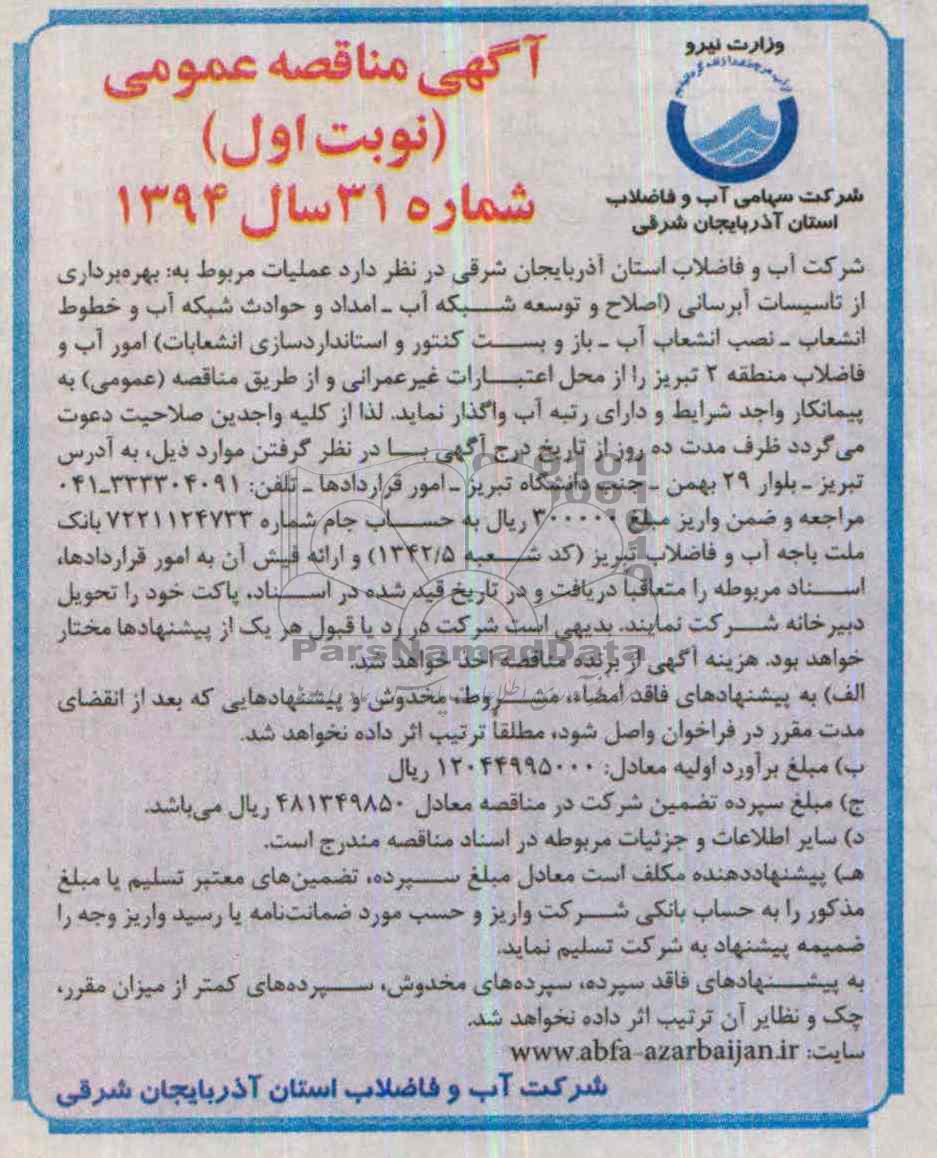 وزارت نیرو
شرکت سهامی آب و فاضلاب
استان آذربایجان شرقی
آگهی مناقصه عمومی
(نوبت اول)
شماره ۳۱ سال ۱۳۹۴
شرکت آب و فاضلاب استان آذربایجان شرقی در نظر دارد عملیات مربوط به: بهره‌برداری
از تاسیسات آبرسانی (اصلاح و توسعه شبکه آب ـ امداد و حوادث شبکه آب و خطوط
انشعاب ـ نصب انشعاب آب ـ باز و بست کنتور و استانداردسازی انشعابات) امور آب و
فاضلاب منطقه ۲ تبریز را از محل اعتبارات غیرعمرانی و از طریق مناقصه (عمومی) به
پیمانکار واجد شرایط و دارای رتبه آب واگذار نماید. لذا از کلیه واجدین صلاحیت دعوت
می‌گردد ظرف مدت ده روز از تاریخ درج آگهی با در نظر گرفتن موارد ذیل، به آدرس
تبریز ـ بلوار ۲۹ بهمن ـ جنب دانشگاه تبریز ـ امور قراردادها ـ تلفن: ۳۳۳۳۰۴۰۹۱-۰۴۱
مراجعه و ضمن واریز مبلغ ۳۰۰۰۰۰ ریال به حساب جام شماره ۷۲۲۱۱۲۴۷۳۳ بانک
ملت باجه آب و فاضلاب تبریز (کد شعبه ۱۳۴۲/۵) و ارائه فیش آن به امور قراردادها،
اسناد مربوطه را متعاقباً دریافت و در تاریخ قید شده در اسناد، پاکت خود را تحویل
دبیرخانه شرکت نمایند. بدیهی است شرکت در رد یا قبول هر یک از پیشنهادها مختار
خواهد بود. هزینه آگهی از برنده مناقصه اخذ خواهد شد.
الف) به پیشنهادهای فاقد امضاء، مشروط، مخدوش و پیشنهادهایی که بعد از انقضای
مدت مقرر در فراخوان واصل شود، مطلقاً ترتیب اثر داده نخواهد شد.
ب) مبلغ برآورد اولیه معادل: ۱۲۰۴۴۹۹۵۰۰۰ ریال
ج) مبلغ سپرده تضمین شرکت در مناقصه معادل ۴۸۱۳۴۹۸۵۰ ریال می‌باشد.
د) سایر اطلاعات و جزئیات مربوطه در اسناد مناقصه مندرج است.
هـ) پیشنهاددهنده مکلف است معادل مبلغ سپرده، تضمین‌های معتبر تسلیم یا مبلغ
مذکور را به حساب بانکی شرکت واریز و حسب مورد ضمانت‌نامه یا رسید واریز وجه را
ضمیمه پیشنهاد به شرکت تسلیم نماید.
به پیشنهادهای فاقد سپرده، سپرده‌های مخدوش، سپرده‌های کمتر از میزان مقرر،
چک و نظایر آن ترتیب اثر داده نخواهد شد.
سایت: www.abfa-azarbaijan.ir
شرکت آب و فاضلاب استان آذربایجان شرقی
ParsNamadData